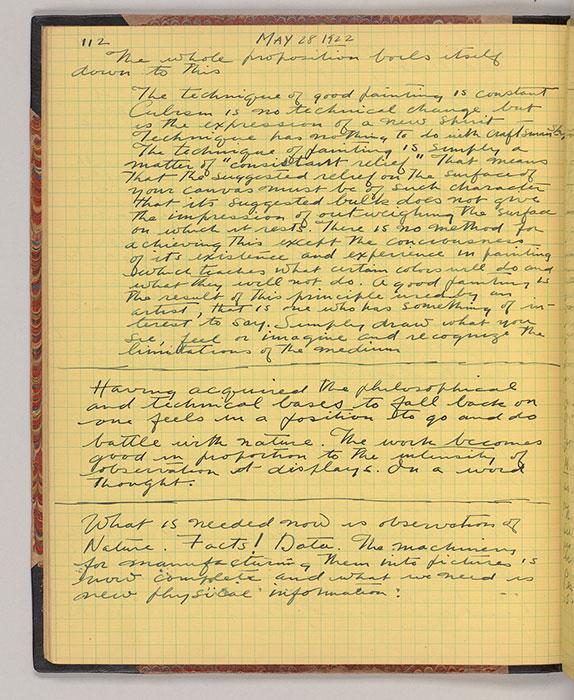 112
MAY 28 1922
The whole proposition boils itself
down to this
The technique of good painting is constant
Cubism is no technical change but
is the expression of a new spirit —
Technique has nothing to do with craftsmanship
The technique of painting is simply a
matter of "consistant relief" That means
that the suggested relief on the surface of
your canvas must be of such character
that its suggested bulk does not give
the impression of outweighing the surface
on which it rests. There is no method for
achieving this except the conciousness
of its existence and experience in painting
which teaches what certain colors will do and
what they will not do. A good painting is
the result of this principle used by an
artist, that is one who has something of in-
terest to say. Simply draw what you
see, feel or imagine and recognize the
limitations of the medium
Having acquired the philosophical
and technical bases to fall back on
one feels in a position to go and do
battle with nature. The work becomes
good in proportion to the intensity of
observation it displays. In a word
thought.
What is needed now is observation of
Nature. Facts! Data. The machinery
for manufacturing them into pictures is
now complete and what we need is
new physical information: